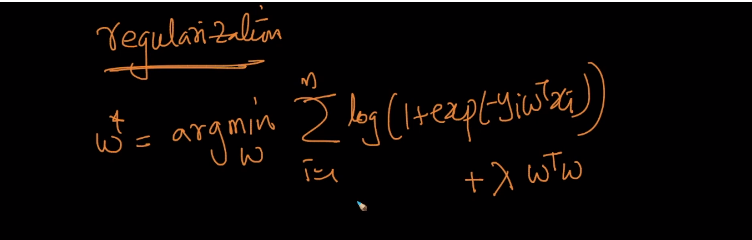 regularization
w* = argmin_w Σ_{i=1}^{n} log(1+exp(-yiwᵀxi))
+ λ wᵀw